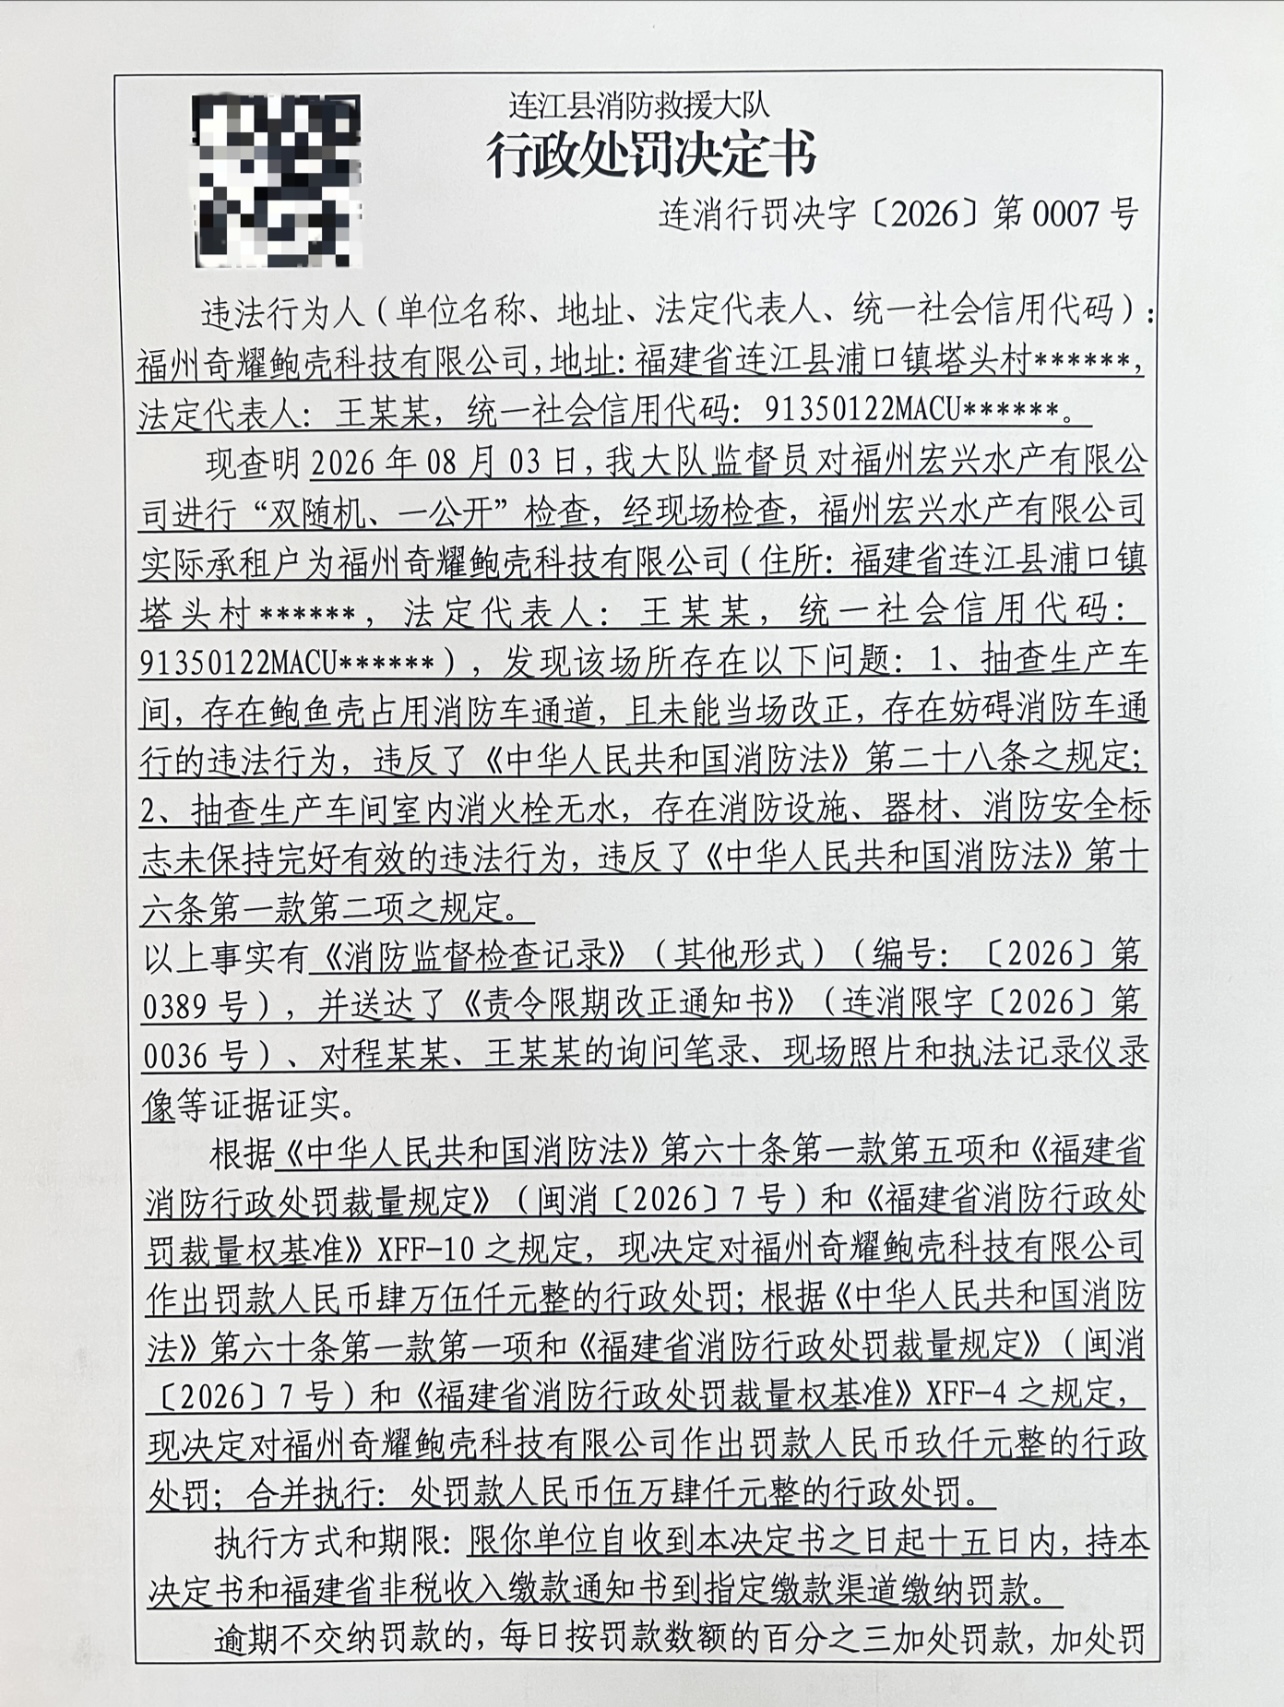 连江县消防救援大队
行政处罚决定书
连消行罚决字〔2026〕第 0007 号
违法行为人（单位名称、地址、法定代表人、统一社会信用代码）：
福州奇耀鲍壳科技有限公司，地址：福建省连江县浦口镇塔头村******，
法定代表人：王某某，统一社会信用代码：91350122MACU******。
现查明 2026 年 08 月 03 日，我大队监督员对福州宏兴水产有限公
司进行“双随机、一公开”检查，经现场检查，福州宏兴水产有限公司
实际承租户为福州奇耀鲍壳科技有限公司（住所：福建省连江县浦口镇
塔头村******，法定代表人：王某某，统一社会信用代码：
91350122MACU******），发现该场所存在以下问题：1、抽查生产车
间，存在鲍鱼壳占用消防车通道，且未能当场改正，存在妨碍消防车通
行的违法行为，违反了《中华人民共和国消防法》第二十八条之规定；
2、抽查生产车间室内消火栓无水，存在消防设施、器材、消防安全标
志未保持完好有效的违法行为，违反了《中华人民共和国消防法》第十
六条第一款第二项之规定。
以上事实有《消防监督检查记录》（其他形式）（编号：〔2026〕第
0389 号），并送达了《责令限期改正通知书》（连消限字〔2026〕第
0036 号）、对程某某、王某某的询问笔录、现场照片和执法记录仪录
像等证据证实。
根据《中华人民共和国消防法》第六十条第一款第五项和《福建省
消防行政处罚裁量规定》（闽消〔2026〕7 号）和《福建省消防行政处
罚裁量权基准》XFF-10 之规定，现决定对福州奇耀鲍壳科技有限公司
作出罚款人民币肆万伍仟元整的行政处罚；根据《中华人民共和国消防
法》第六十条第一款第一项和《福建省消防行政处罚裁量规定》（闽消
〔2026〕7 号）和《福建省消防行政处罚裁量权基准》XFF-4 之规定，
现决定对福州奇耀鲍壳科技有限公司作出罚款人民币玖仟元整的行政
处罚；合并执行：处罚款人民币伍万肆仟元整的行政处罚。
执行方式和期限：限你单位自收到本决定书之日起十五日内，持本
决定书和福建省非税收入缴款通知书到指定缴款渠道缴纳罚款。
逾期不交纳罚款的，每日按罚款数额的百分之三加处罚款，加处罚